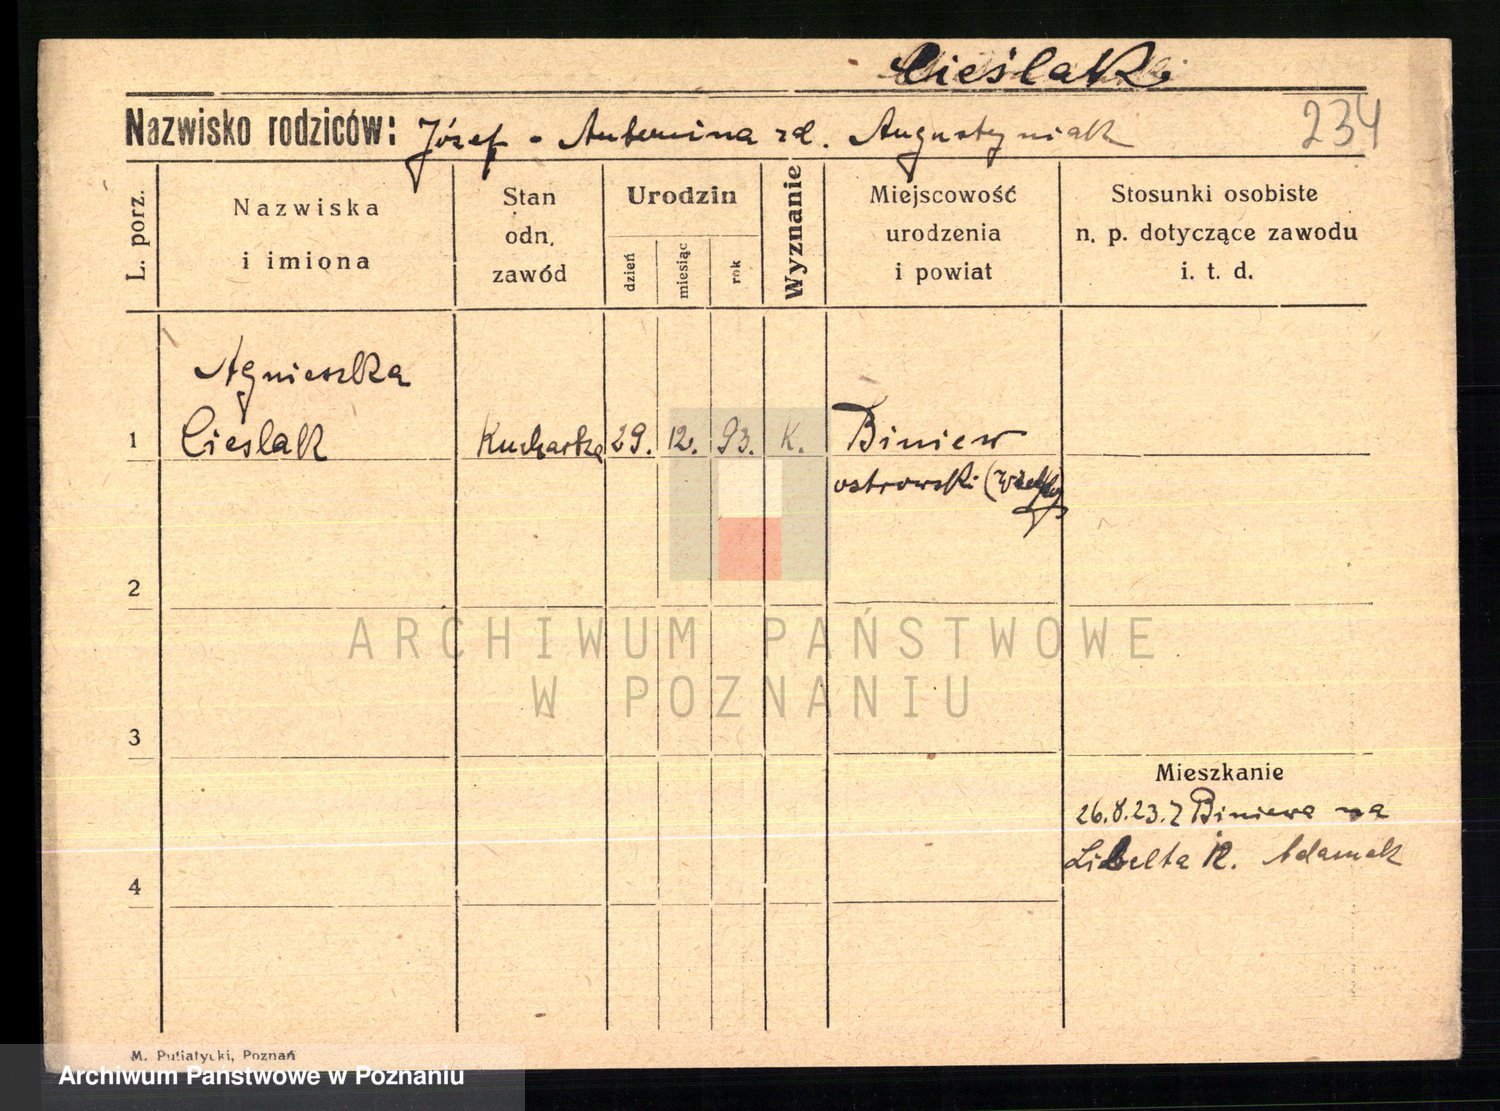 Cieślak
Nazwisko rodziców: Józef - Antonina zd. Augustyniak
234
L. porz.
Nazwiska
i imiona
Stan
odn.
zawód
Urodzin
dzień
miesiąc
rok
Wyznanie
Miejscowość
urodzenia
i powiat
Stosunki osobiste
n. p. dotyczące zawodu
i. t. d.
Agnieszka
1 Cieslak Kucharka 29. 12. 93. K. Biniew
ostrowski
2
ARCHIWUM PAŃSTWOWE
W POZNANIU
3
Mieszkanie
26.8.23. z Biniewa na
Libelta 12. Adamek
4
M. Putiatycki, Poznań
Archiwum Państwowe w Poznaniu